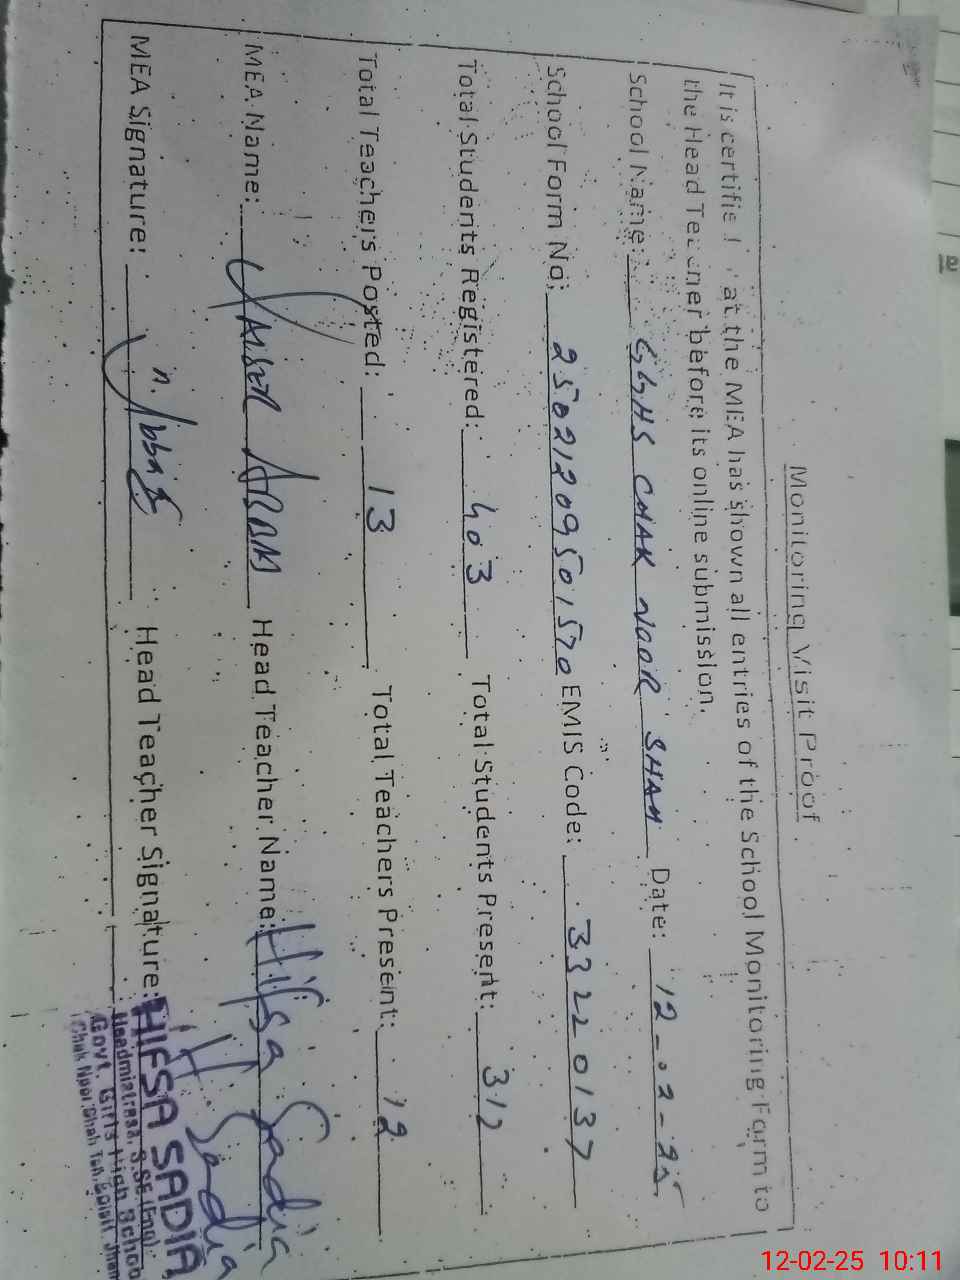 Monitoring Visit Proof
It is certifie at the MEA has shown all entries of the School Monitoring Form to
the Head Teacher before its online submission.
School Name: GGHS CHAK NOOR SHAH Date: 12-02-25
School Form No: 25021209501570 EMIS Code: 33220137
Total Students Registered: 403 Total Students Present: 312
Total Teachers Posted: 13 Total Teachers Present: 12
MEA Name: Head Teacher Name: Hifsa Sadia
MEA Signature: n. Abbas Head Teacher Signature: H Sadia
HIFSA SADIA
Headmistress, S.SE (Eng)
Govt. Girls High School
Chak Noor Shah
12-02-25 10:11